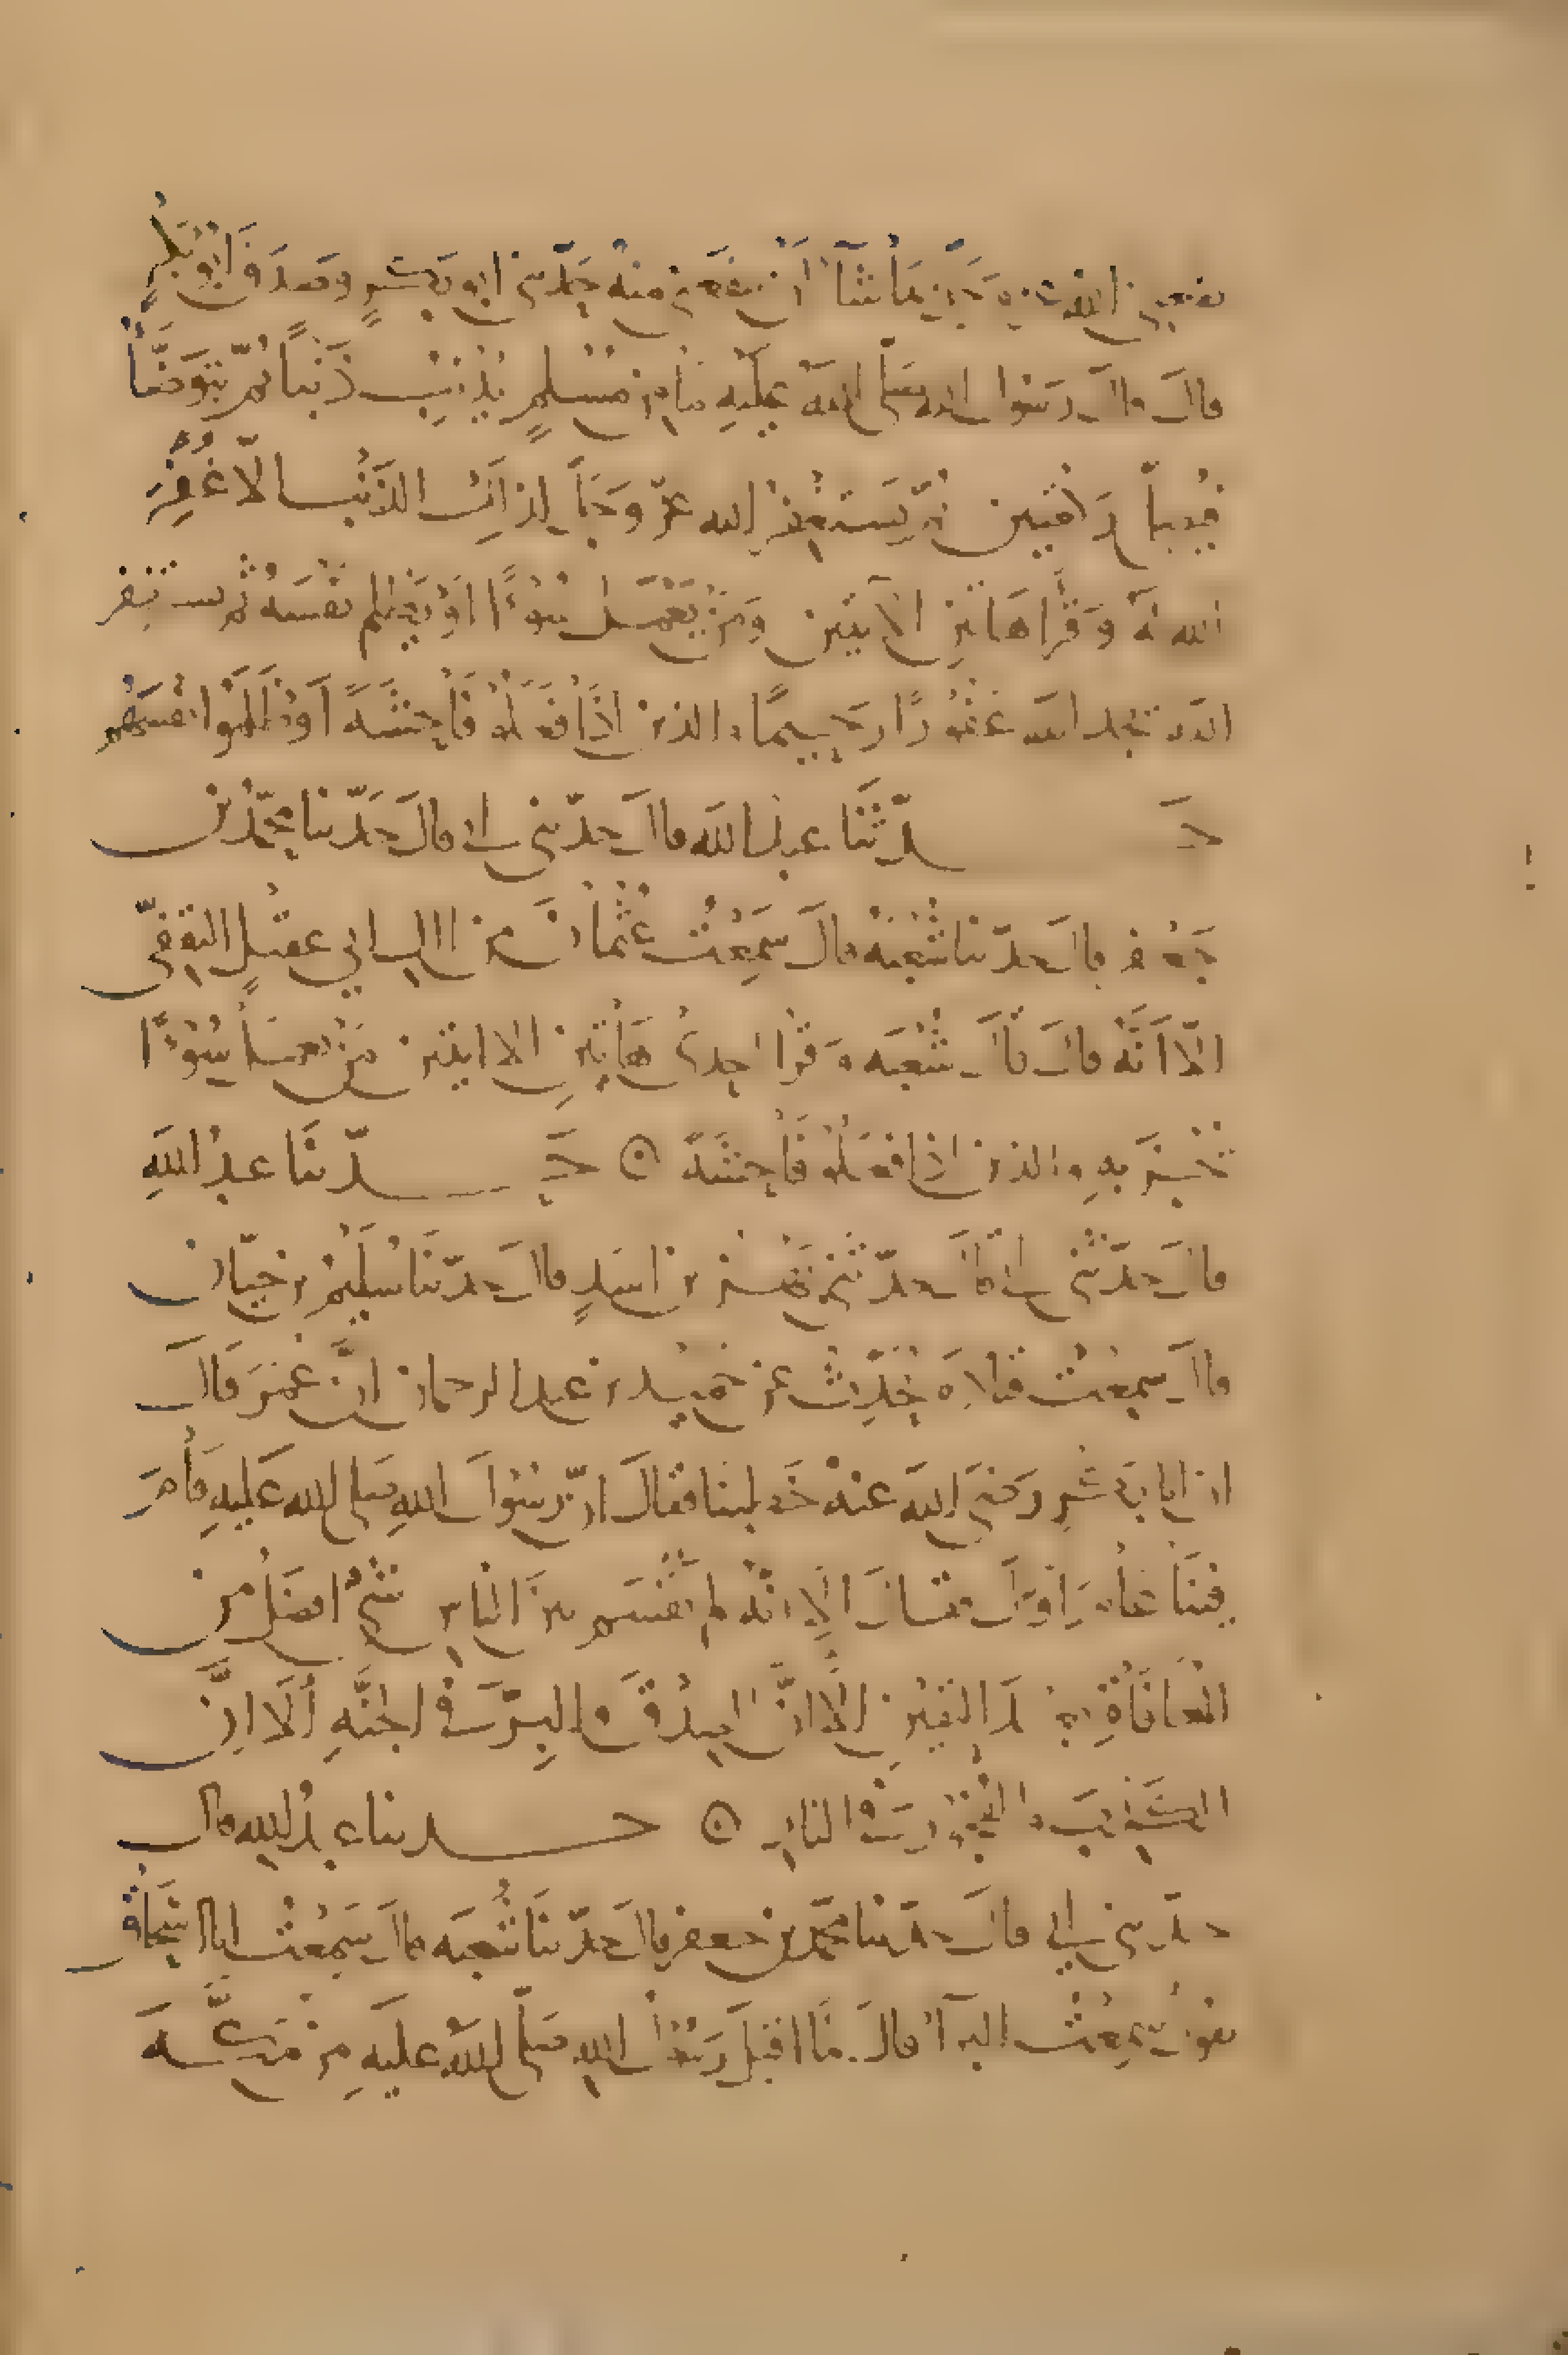 نفعني الله عز وجل بما شآء أن ينفعني منه حدثني ابو بكر وصدق ابو بكر
قال قال رسول الله صلى الله عليه ما من مسلم يذنب ذنبا ثم يتوضأ
فيصلي ركعتين ثم يستغفر الله عز وجل لذلك الذنب الا غفر
الله له وقرأ هاتين الآيتين ومن يعمل سوءا او يظلم نفسه ثم يستغفر
الله يجد الله غفورا رحيما والذين اذا فعلوا فاحشة او ظلموا انفسهم
حدثنا عبد الله قال حدثني ابي قال حدثنا محمد بن
جعفر قال حدثنا شعبة قال سمعت عثمان من ال ابي عقيل الثقفي
الا انه قال قال شعبه وقرا احدى هاتين الايتين من يعمل سوءا
يجز به والذين اذا فعلوا فاحشة حدثنا عبد الله
قال حدثني ابي قال حدثني بهز بن اسد قال حدثنا سليم بن حيان
قال سمعت قتادة يحدث عن حميد بن عبد الرحمان ان عمر قال
ان ابا بكر رضي الله عنه خطبنا فقال ان رسول الله صلى الله عليه قام
فينا عام اول فقال الا انه لم يقسم بين الناس شي افضل من
المعافاة بعد اليقين الا ان الصدق والبر في الجنة ألا ان
الكذب والفجور في النار حدثنا عبد الله قال
حدثني ابي قال حدثنا محمد بن جعفر قال حدثنا شعبه قال سمعت ابا اسحاق
يقول سمعت البرآء قال لما اقبل رسول الله صلى الله عليه من مكة